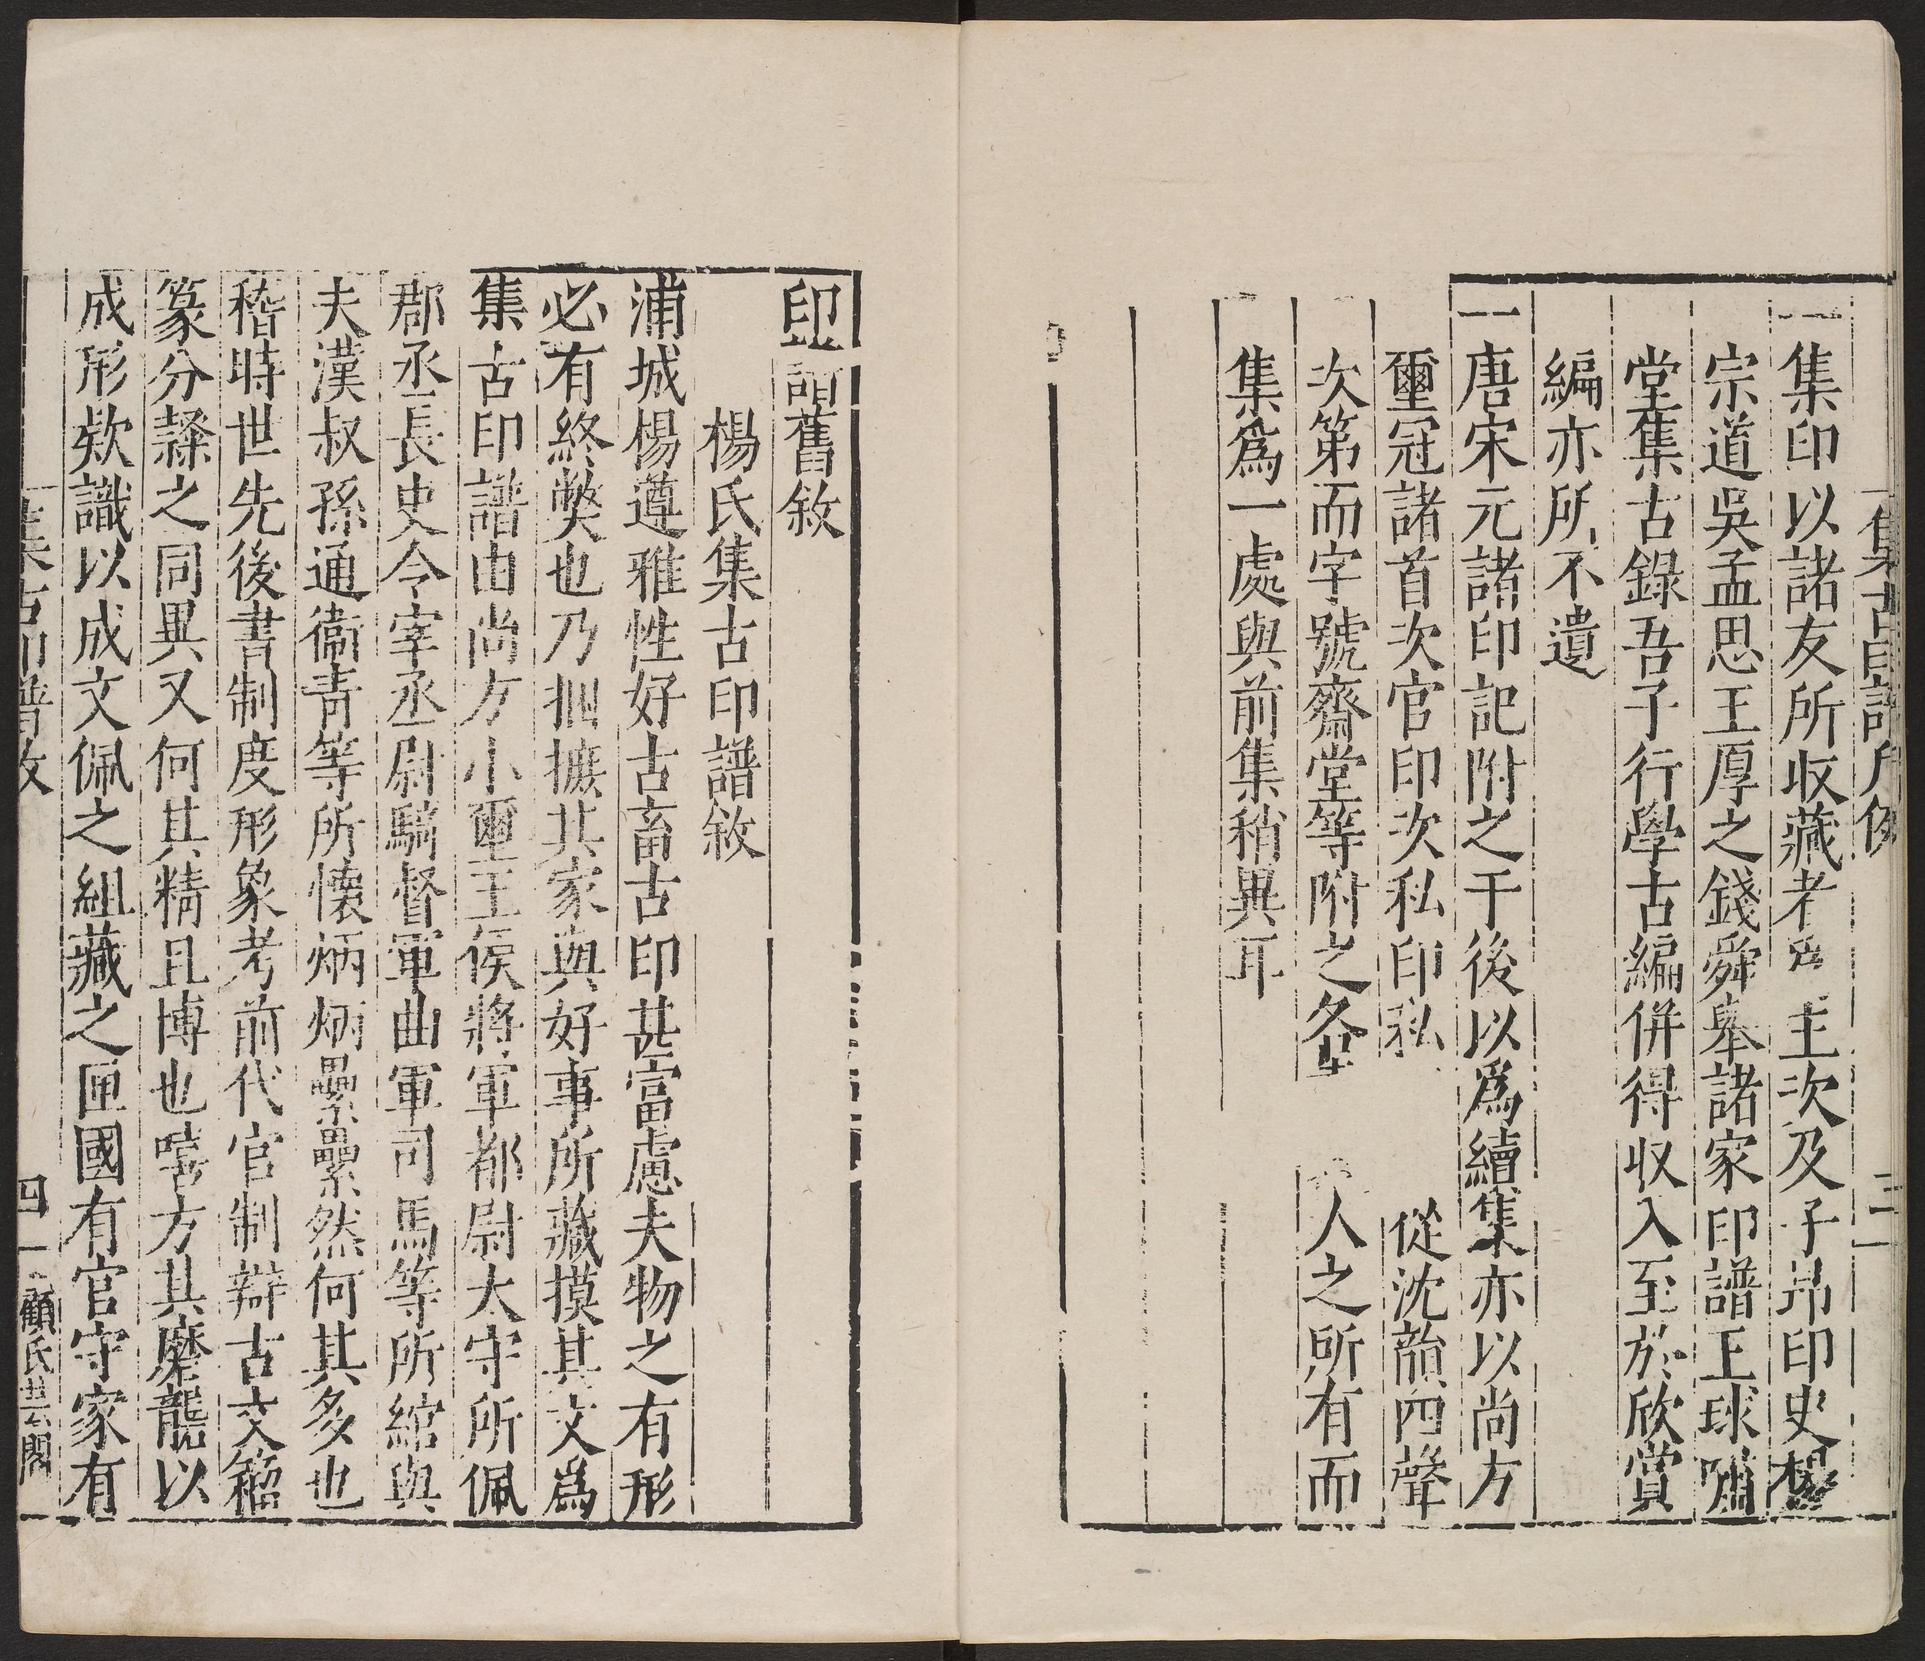 集古印譜凡例
三
一集印以諸友所收藏者為主次及子昻印史楊
宗道吳孟思王厚之錢舜舉諸家印譜王球嘯
堂集古錄吾子行學古編併得收入至於欣賞
編亦所不遺
一唐宋元諸印記附之于後以爲續集亦以尚方
璽冠諸首次官印次私印私 從沈韻四聲
次第而字號齋堂等附之各 人之所有而
集爲一處與前集稍異耳
印譜舊敘
楊氏集古印譜敘
浦城楊遵雅性好古畜古印甚富慮夫物之有形
必有終獘也乃捃摭其家與好事所藏摸其文爲
集古印譜由尚方小璽王侯將軍都尉太守所佩
郡丞長史令宰丞尉騎督軍曲軍司馬等所綰與
夫漢叔孫通衞青等所懷炳炳纍纍然何其多也
稽時世先後書制度形象考前代官制辯古文籀
篆分隸之同異又何其精且博也嘻方其磨礲以
成形欵識以成文佩之組藏之匣國有官守家有
集古印譜敘
四
顧氏芸閣